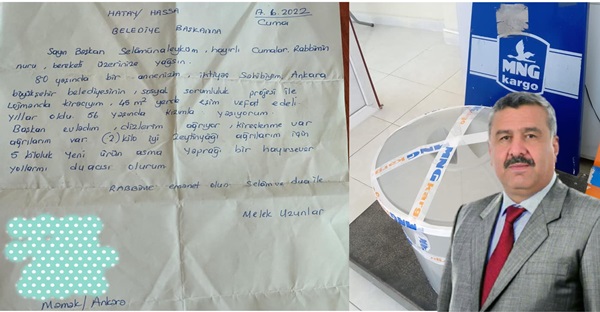 HATAY/HASSA 7.6.2022
BELEDİYE BAŞKANINA Cuma
Sayın Başkan Selâmünaleyküm, hayırlı Cumalar. Rabbimin
nuru, bereketi üzerinize yağsın.
80 yaşında bir annenizim, ihtiyaç Sahibiyim, Ankara
büyükşehir belediyesinin, sosyal sorumluluk projesi ile
Lojmanda kiracıyım. 45 m² yerde eşim vefat edeli
yıllar oldu. 56 yaşında kızımla yaşıyorum.
Başkan evladım, dizlerim ağrıyor, kireçlenme var
ağrılarım var (2) kilo iyi zeytinyağı ağrılarım için
5 kiloluk yeni ürün asma yaprağı bir hayırsever
yollarmı duacısı olurum
RABBİME emanet olun Selâm ve dua ile
Melek Uzunlar
Mamak/Ankara
MNG
kargo
MNG kargo
MNG